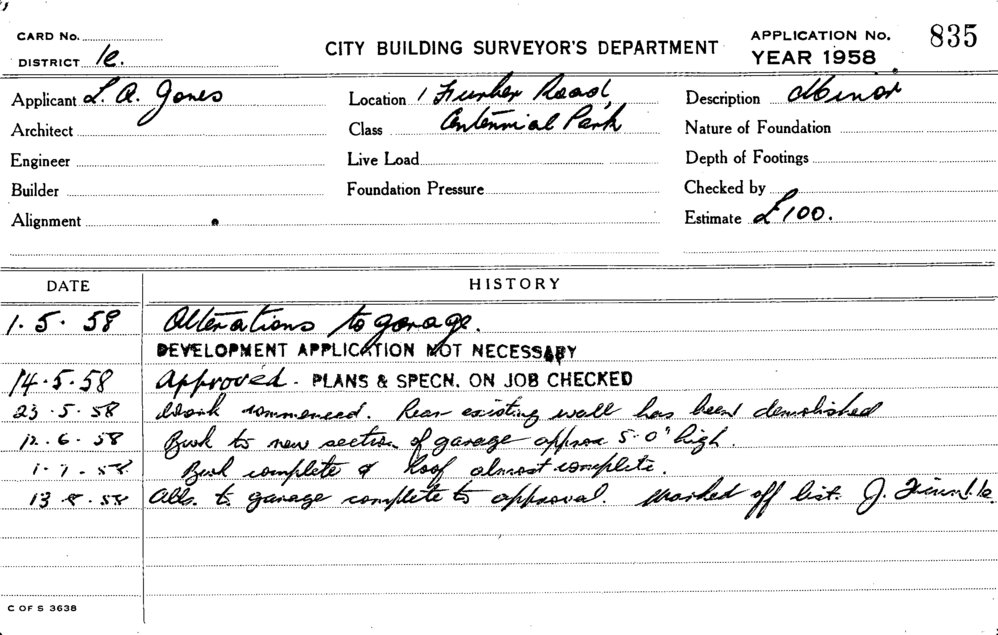 CARD No.
DISTRICT 1c.
CITY BUILDING SURVEYOR'S DEPARTMENT
APPLICATION No. 835
YEAR 1958
Applicant L. A. Jones
Location 1 Furber Road,
Description Minor
Architect
Class Centennial Park
Nature of Foundation
Engineer
Live Load
Depth of Footings
Builder
Foundation Pressure
Checked by
Alignment
Estimate £100.
DATE HISTORY
1.5.58 Alterations to garage.
DEVELOPMENT APPLICATION NOT NECESSARY
14.5.58 Approved. PLANS & SPECN. ON JOB CHECKED
23.5.58 Work commenced. Rear existing wall has been demolished
12.6.58 Bwk to new section of garage approx 5'0" high.
1.7.58 Bwk complete & Roof almost complete.
13.8.58 Alts. to garage complete to approval. Marked off list. J.
C OF S 3638